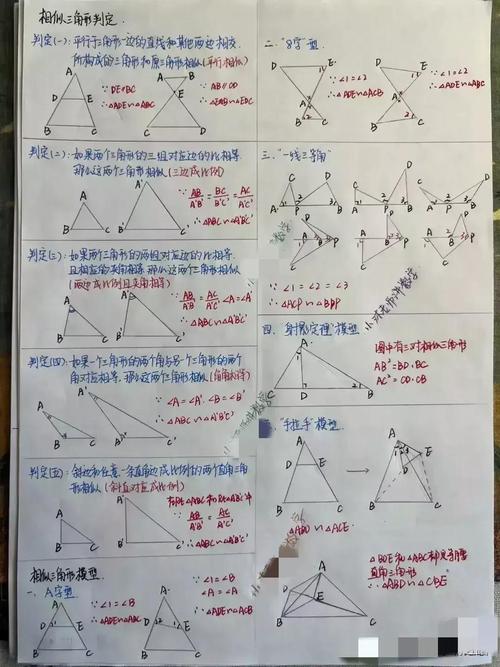 相似三角形判定.
判定(一): 平行于三角形一边的直线和其他两边相交,
所构成的三角形和原三角形相似(平行,相似)
A
D E
B C
∵ DE∥BC
∴ △ADE∽△ABC
A B
E
D C
∵ AB∥CD
∴ △EAB∽△EDC
判定(二): 如果两个三角形的三组对应边的比相等,
那么这两个三角形相似(三边成比例)
A
B C
A'
B' C'
∵ AB/A'B' = BC/B'C' = AC/A'C'
∴ △ABC∽△A'B'C'
判定(三): 如果两个三角形的两组对应边的比相等,
且相应的夹角相等,那么这两个三角形相似
(两边成比例且夹角相等)
A
B C
A'
B' C'
∵ AB/A'B' = AC/A'C', ∠A=∠A'
∴ △ABC∽△A'B'C'
判定(四): 如果一个三角形的两个角与另一个三角形的两个
角对应相等,那么这两个三角形相似
A
B C
A'
B' C'
∵ ∠A=∠A', ∠B=∠B'
∴ △ABC∽△A'B'C'
判定(五): 斜边和任意一条直角边成比例的两个直角三角
形相似(斜直对应成比例)
A
B C
A'
B' C'
在Rt△ABC和Rt△A'B'C'中
∵ AB/A'B' = AC/A'C'
∴ △ABC∽△A'B'C'
相似三角形模型.
一、A字型
A
D E
B C
∵ DE∥BC
∴ △ADE∽△ABC
A
D 1 2 E
B C
∵ ∠1=∠B
∠A=∠A
∴ △ADE∽△ABC
二、"8字"型
D 1 E
A
B 2 C
∵ ∠1=∠2
∴ △ADE∽△ACB
D 1 E
A
B 2 C
∵ ∠1=∠2
∴ △ADE∽△ACB
三、"一线三等角"
C D
1 2 3
A P B
∵ ∠1=∠2=∠3
∴ △ACP∽△BPD
四、"射影定理"模型
A
1
B D C
2
图中有三对相似三角形
AB²=BD·BC
AC²=CD·CB
"手拉手"模型.
A
D E
B C
→
A
E
D
B C
∴ △ABD∽△ACE.
A
D E
B C
△BDE和△ABC都是等腰
直角三角形
∴ △ABD∽△CBE